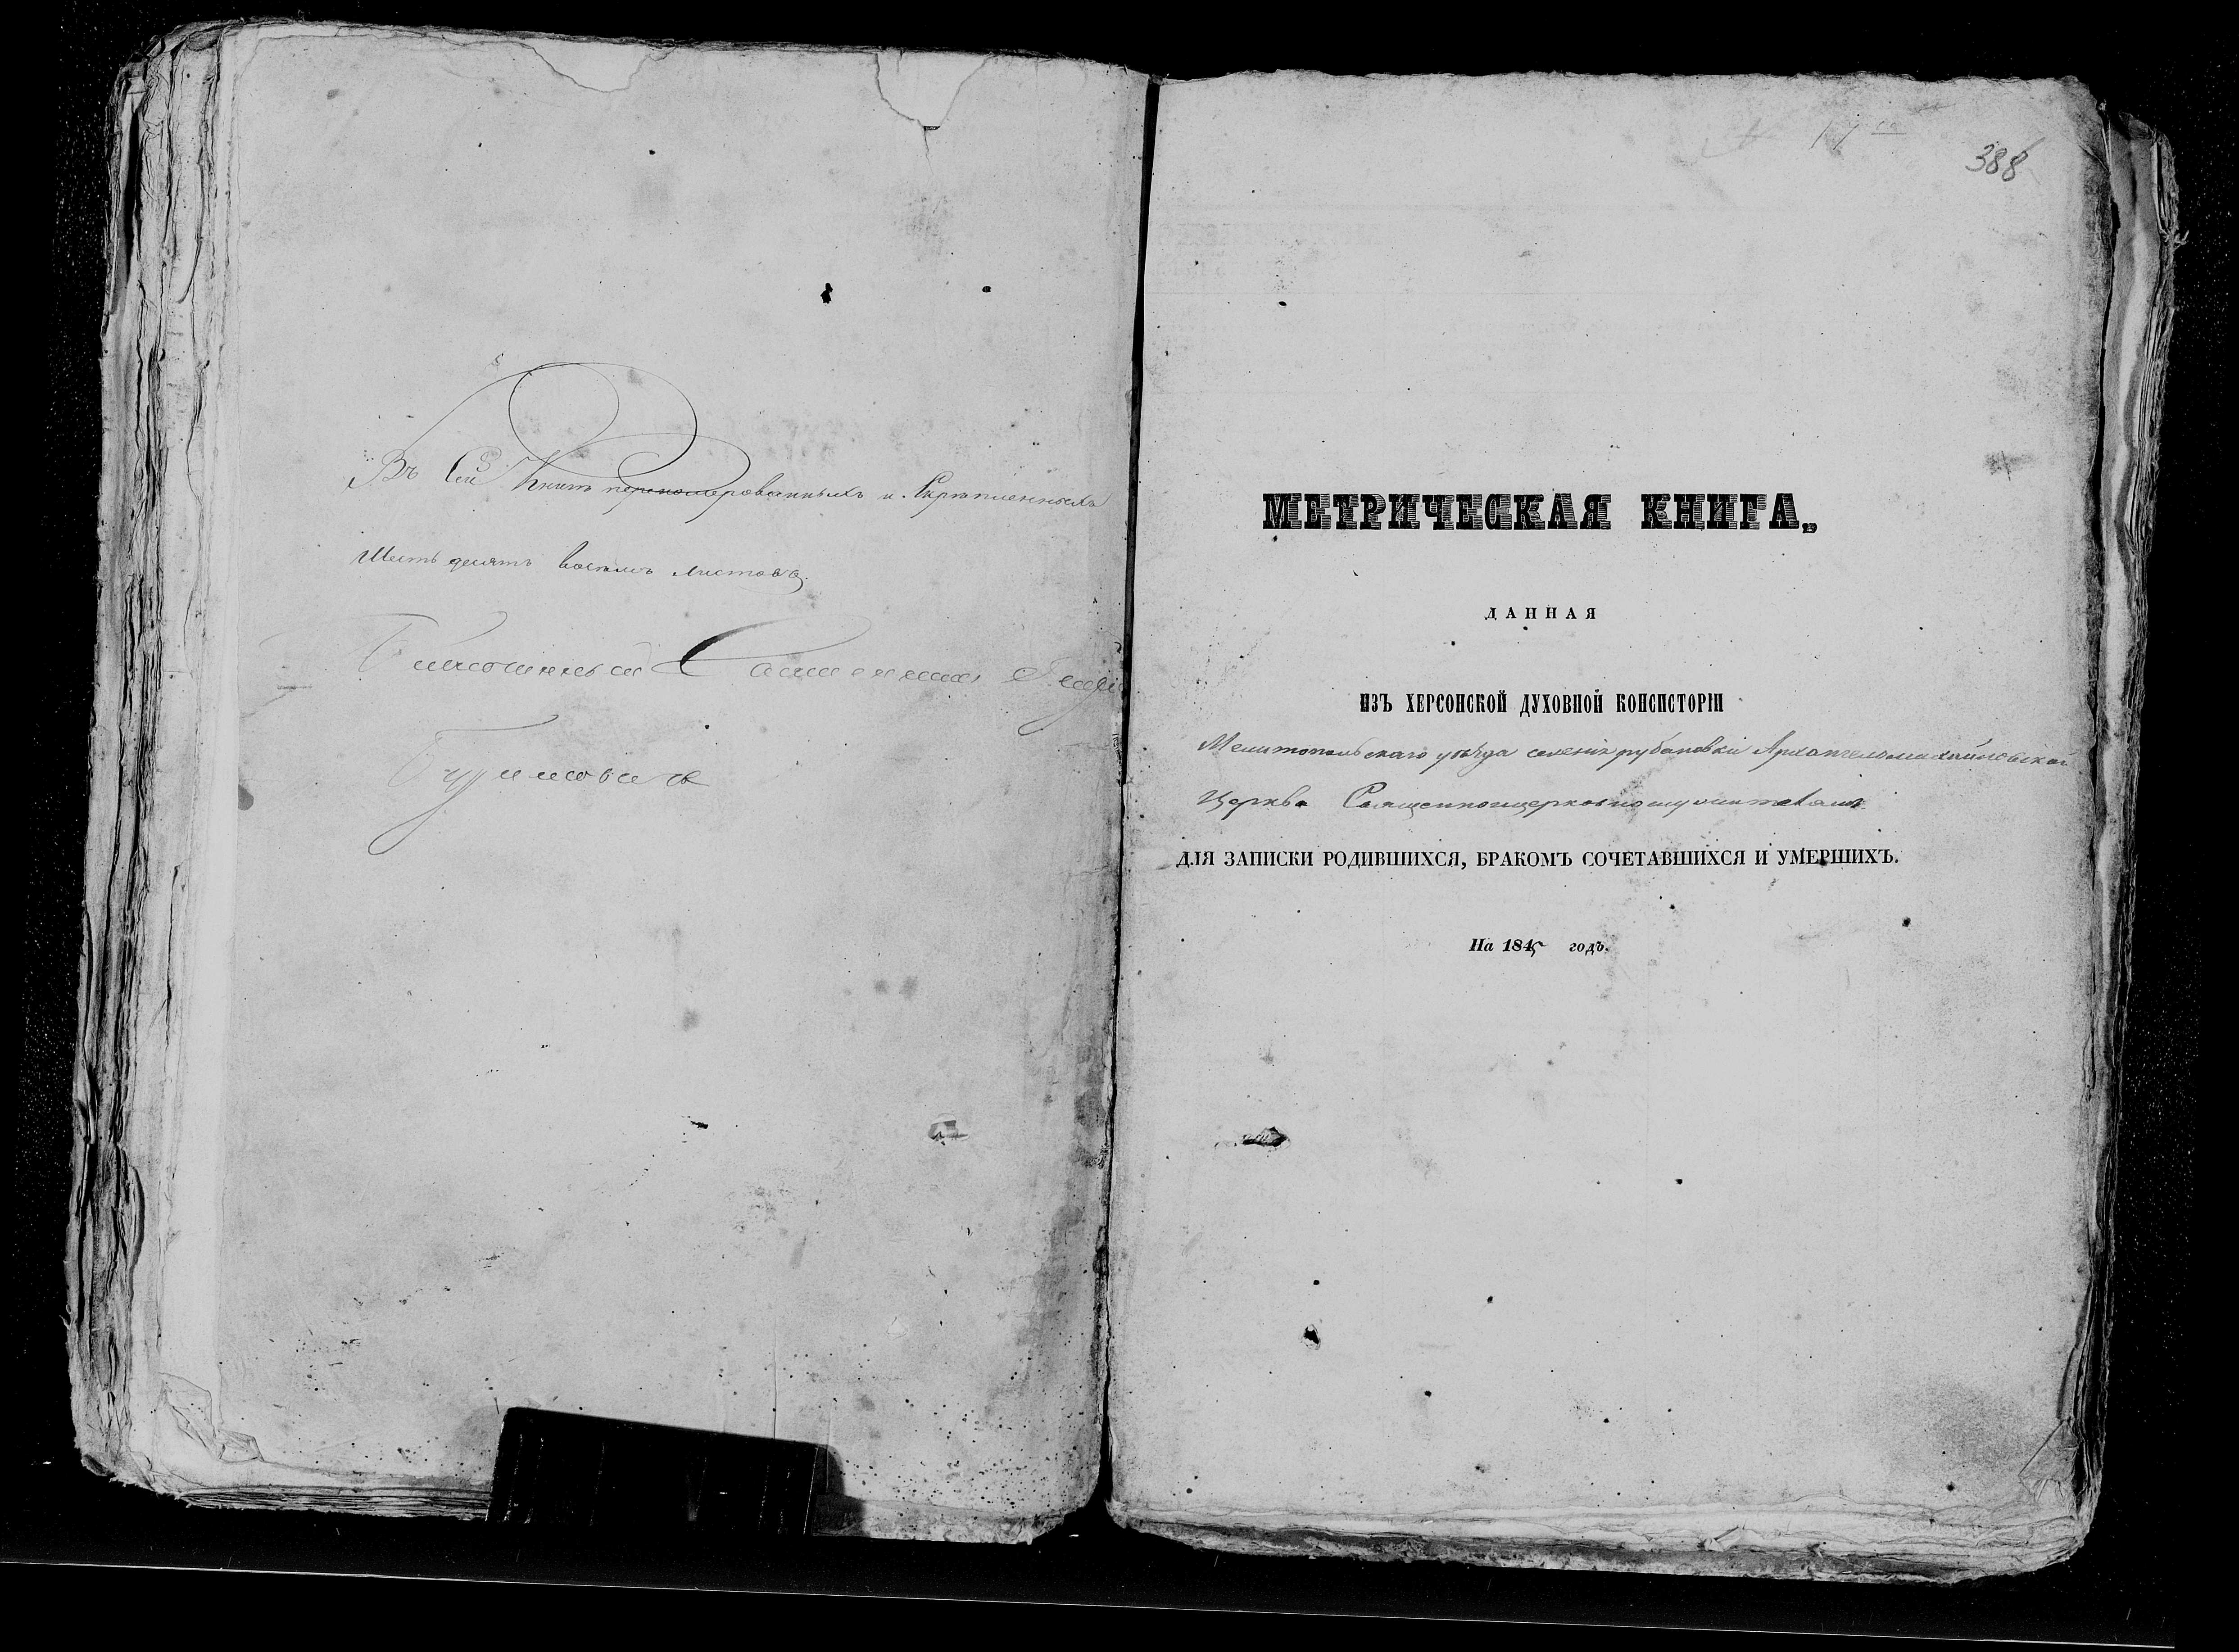 Въ Сей Книгѣ перономерованныхъ и Скрѣпленныхъ
Шестьдесятъ восемь листовъ.
388
МЕТРИЧЕСКАЯ КНИГА,
ДАННАЯ
ИЗЪ ХЕРСОНСКОЙ ДУХОВНОЙ КОНСИСТОРІИ
Мелитопольскаго уѣзда селенія рубановки Архангеломихайловской
Церкви Священноцерковнослужителямъ
ДЛЯ ЗАПИСКИ РОДИВШИХСЯ, БРАКОМЪ СОЧЕТАВШИХСЯ И УМЕРШИХЪ.
На 1845 годъ.